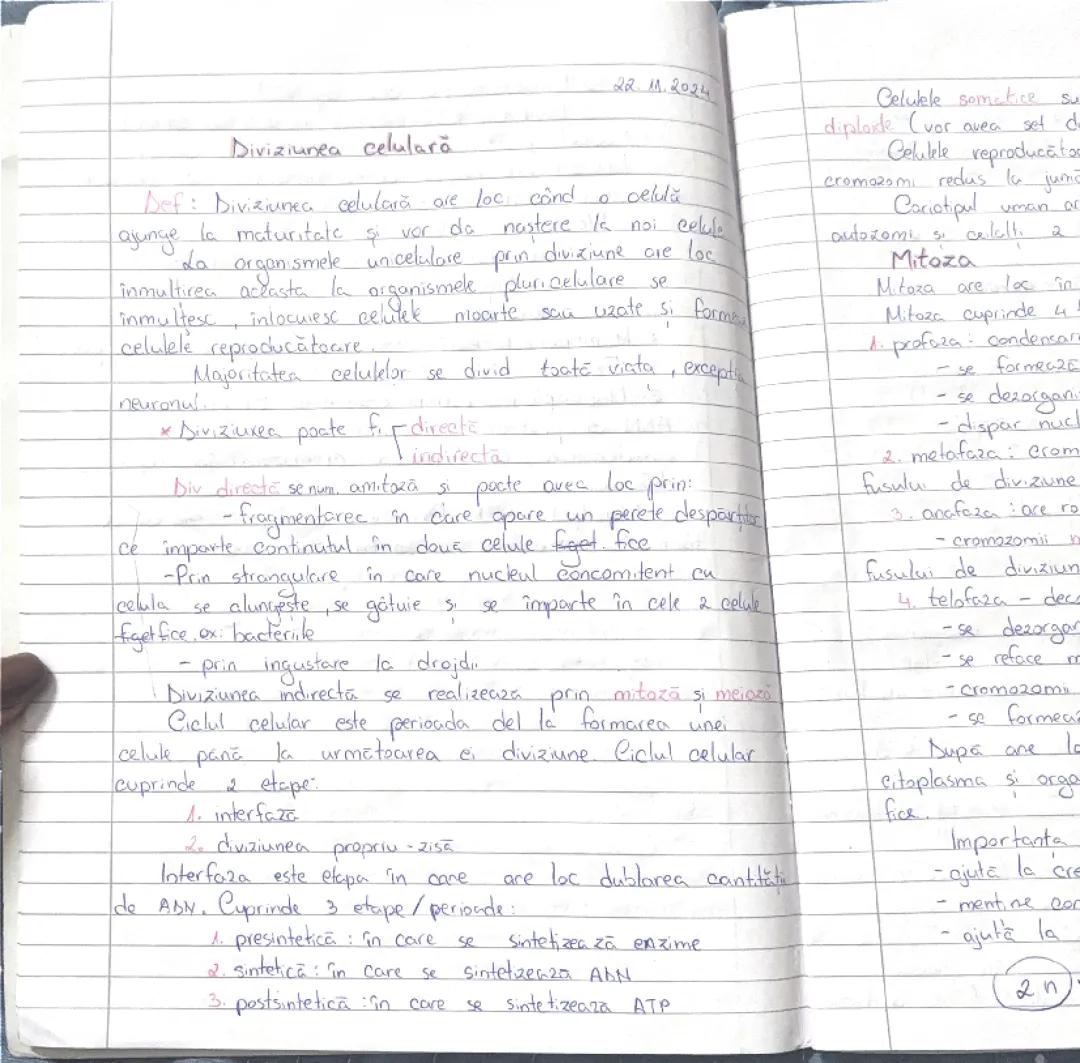 22. 11. 2024
Diviziunea celulară
Def: Diviziunea celulară are loc când o celulă
ajunge la maturitate și vor da naștere la noi celule
La organismele unicelulare prin diviziune are loc
inmulțirea aceasta la organismele pluricelulare se
inmulțesc, inlocuiesc celulele moarte sau uzate si formea
celulele reproducătoare.
Majoritatea celulelor se divid toată viata, exceptia
neuronul.
* Diviziunea poate fi directă
indirectă
Div directă se num. amitoză si poate avea loc prin:
- fragmentarea in care apare un perete despărțitor
ce imparte continutul în două celule fice
-Prin strangulare in care nucleul concomitent cu
celula se alungește, se gâtuie si se împarte în cele 2 celule
fice. ex: bacteriile
- prin ingustare la drojdii
Diviziunea indirectă se realizează prin mitoză și meioză
Ciclul celular este perioada de la formarea unei
celule până la următoarea ei diviziune. Ciclul celular
cuprinde 2 etape:
1. interfază
2. diviziunea propriu-zisă
Interfaza este etapa în care are loc dublarea cantității
de ADN. Cuprinde 3 etape/perioade:
1. presintetică: în care se sintetizează enzime
2. sintetică: în care se sintetzeaza ADN
3. postsintetică: în care se sintetizeaza ATP
Celulele somatice su
diploide (vor avea set d
Celulele reproducător
cromozomi redus la jumă
Cariotipul uman ar
autozomi si ceilalti 2
Mitoza
Mitoza are loc în
Mitoza cuprinde 4
1. profaza: condensar
- se formează
- se dezorgani
- dispar nucl
2. metafaza: crom
fusului de diviziune
3. anafaza: are ro
- cromozomii
fusului de diviziun
4. telofaza - dec
- se dezorgan
- se reface m
- cromozomii
- se formeaz
După are lo
citoplasma și orga
fice.
Importanta
- ajută la cre
- mentine con
- ajută la
2n